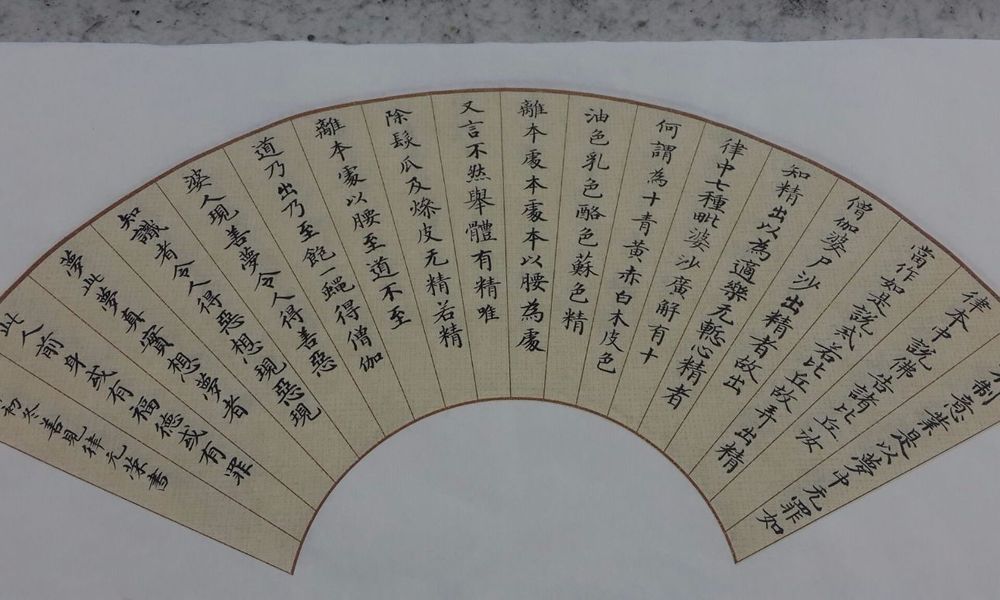 制意業是以夢中无罪如
律本中說佛告諸比丘汝
當作如是說戒若比丘故弄出精
僧伽婆尸沙出精者故出
知精出以為適樂无慙心精者
律中七種毗婆沙廣解有十
何謂為十青黃赤白木皮色
油色乳色酪色蘇色精
離本處本處本以腰為處
又言不然舉體有精唯
除髮瓜及燥皮无精若精
離本處以腰至道不至
道乃出乃至飽一蠅得僧伽
婆人現善夢令人得善惡
知識者令人得惡想現惡現
夢此夢真實想夢者
此人前身或有福德或有罪
初冬善見律元榮書